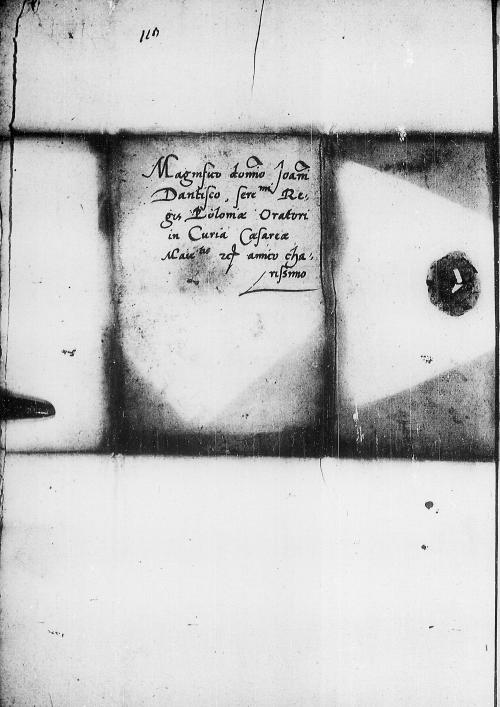 Magnifico domino Joanni
Dantisco, sere^mi Re-
gis Poloniæ Oratori
in Curia Cæsareæ
Maie^tis amico cha-
rissimo